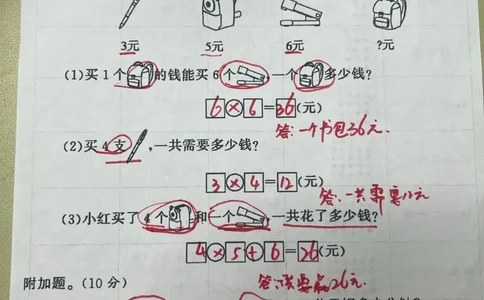 3元 5元 6元 ?元
(1)买1个的钱能买6个,一个多少钱?
6×6=36(元)
答:一个书包36元.
(2)买4支,一共需要多少钱?
3×4=12(元)
答:一共需要12元
(3)小红买了4个和一个,一共花了多少钱?
4×5+6=26(元)
附加题。(10分)